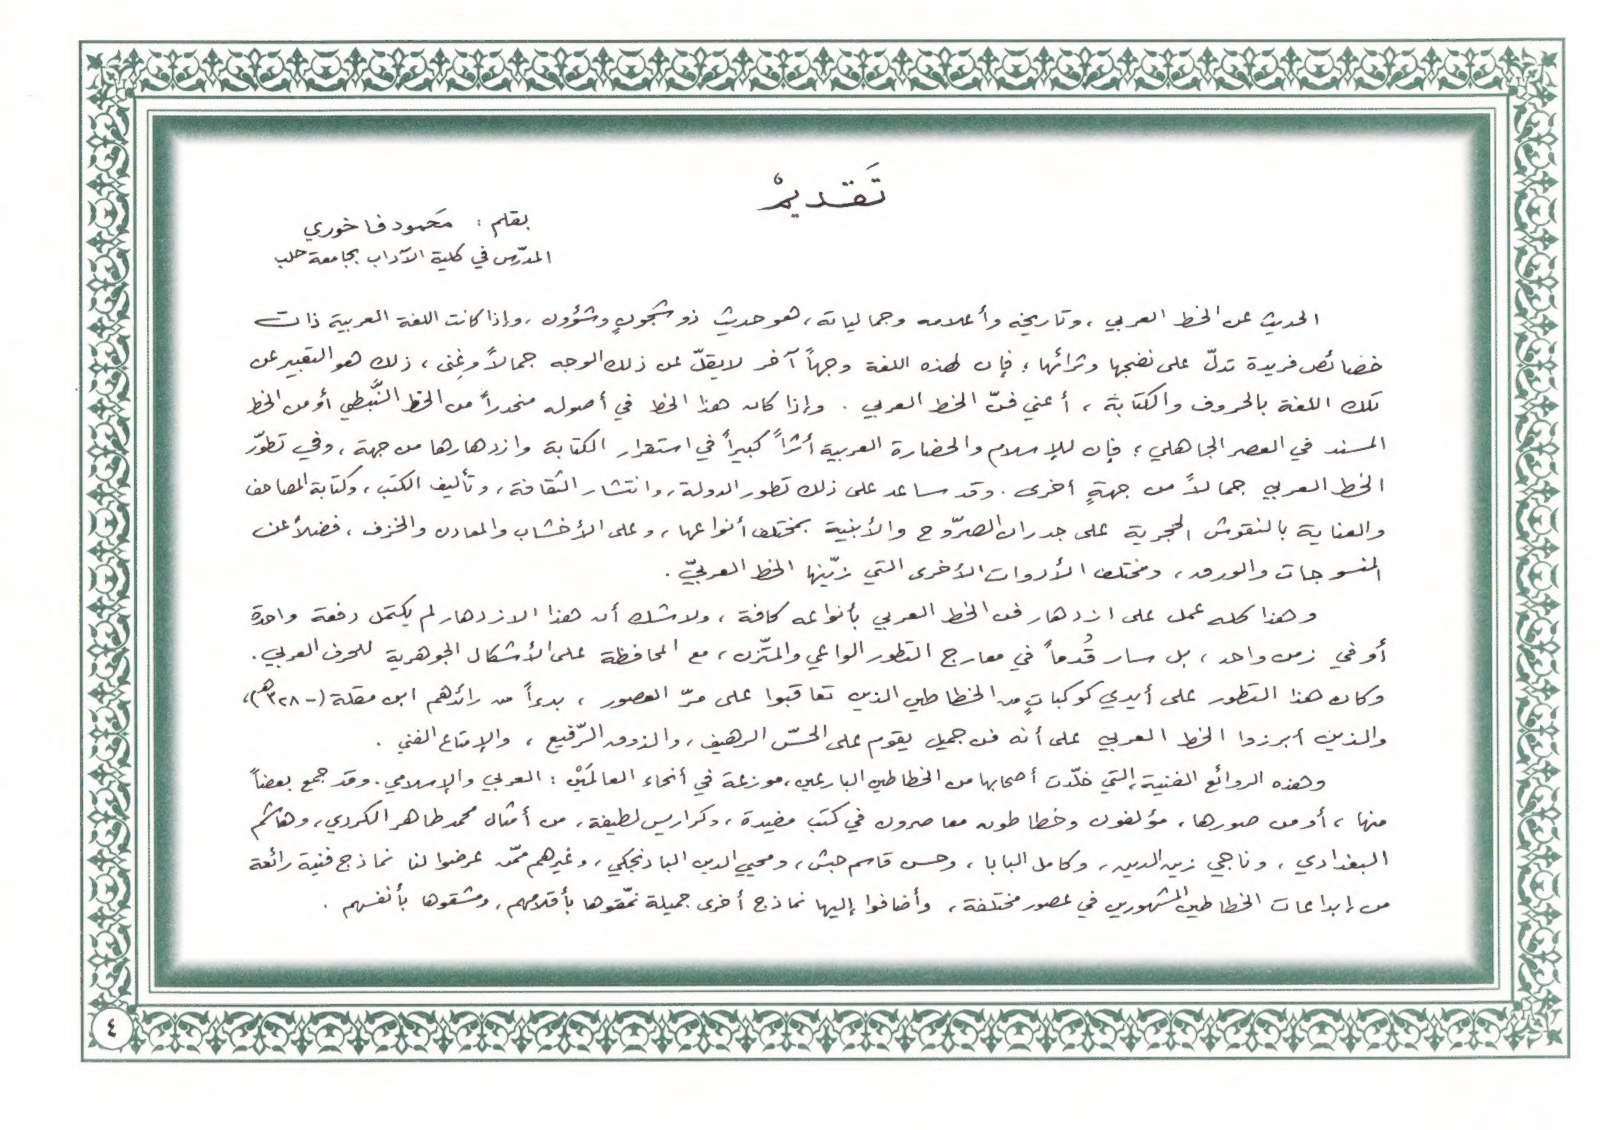 تَقديمْ
بقلم : محَمود فاخوري
المدرّس في كلية الآداب بجامعة حلب
الحديث عن الخط العربي ، وتاريخه وأعلامه وجمالياته ، هو حديث ذو شجونٍ وشؤون ، وإذا كانت اللغة العربية ذات
خصائص فريدة تدلّ على نضجها وثرائها ؛ فإن لهذه اللغة وجهاً آخر لا يقلّ عن ذلك الوجه جمالاً وغِنى ، ذلك هو التعبير عن
تلك اللغة بالحروف والكتابة ، أعني فنّ الخط العربي . وإذا كان هذا الخط في أصوله منحدراً من الخط النَّبطي أو من الخط
المسند في العصر الجاهلي ؛ فإن للإسلام والحضارة العربية أثراً كبيراً في استقرار الكتابة وازدهارها من جهة ، وفي تطوّر
الخط العربي جمالاً من جهةٍ أخرى . وقد ساعد على ذلك تطور الدولة ، وانتشار الثقافة ، وتأليف الكتب ، وكتابة المصاحف
والعناية بالنقوش الحجرية على جدران الصرّوح والأبنية بمختلف أنواعها ، وعلى الأخشاب والمعادن والخزف ، فضلاً عن
المنسوجات والورق ، ومختلف الأدوات الأخرى التي زيّنها الخط العربيّ .
وهذا كله عمل على ازدهار فن الخط العربي بأنواعه كافة ، ولا شك أن هذا الازدهار لم يكتمل دفعة واحدة
أو في زمن واحد ، بل سار قُدماً في معارج التطور الواعي والمتّزن ، مع المحافظة على الأشكال الجوهرية للحرف العربي .
وكان هذا التطور على أيدي كوكباتٍ من الخطاطين الذين تعاقبوا على مرّ العصور ، بدءاً من رائدهم ابن مقلة (- ٣٢٨هـ) ،
والذين أبرزوا الخط العربي على أنه فن جميل يقوم على الحسّ الرهيف ، والذوق الرّفيع ، والإمتاع الفني .
وهذه الروائع الفنية ، التي خلّدت أصحابها من الخطاطين البارعين ، موزعة في أنحاء العالمَيْن : العربي والإسلامي . وقد جمع بعضاً
منها ، أو من صورها ، مؤلفون وخطاطون معاصرون في كتب مفيدة ، وكراريس لطيفة ، من أمثال محمد طاهر الكردي ، وهاشم
البغدادي ، وناجي زين الدين ، وكامل البابا ، وحسن قاسم حبش ، ومحيي الدين البادنجكي ، وغيرهم ممّن عرضوا لنا نماذج فنية رائعة
من إبداعات الخطاطين المشهورين في عصور مختلفة ، وأضافوا إليها نماذج أخرى جميلة نمّقوها بأقلامهم ، ومشقوها بأنفسهم .
٤